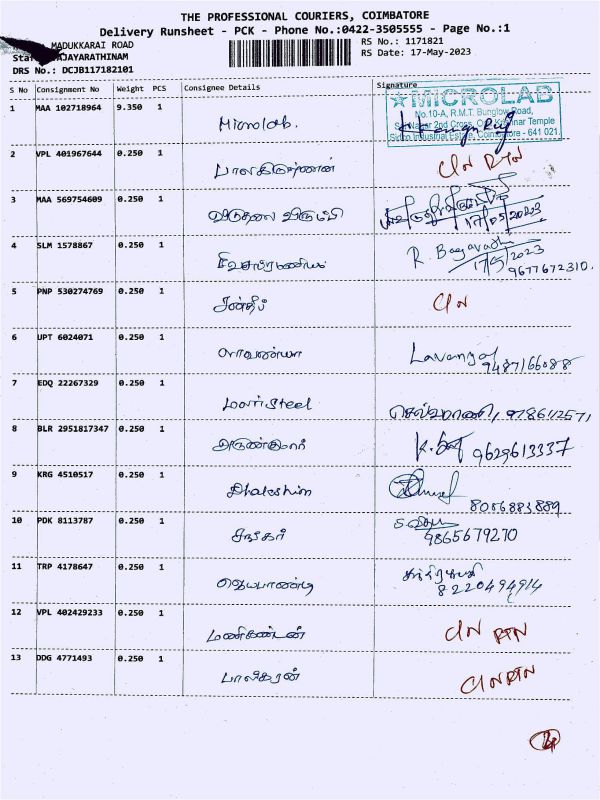 THE PROFESSIONAL COURIERS, COIMBATORE
Delivery Runsheet - PCK - Phone No.:0422-3505555 - Page No.:1
MADUKKARAI ROAD
RS No.: 1171821
RS Date: 17-May-2023
DRS No.: DCJB117182101
S No Consignment No Weight PCS Consignee Details Signature
MICROLAB
No.10-A, R.M.T. Bunglow Road,
Sidco Industrial Estate, Coimbatore - 641 021.
1 MAA 102718964 9.350 1 Microlab.
2 VPL 401967644 0.250 1 பாலகிருஷ்ணன் C/N RTN
3 MAA 569754609 0.250 1 விடுதலை விரும்பி 17/05/2023
4 SLM 1578867 0.250 1 சிவசுப்ரமணியம் R. Bagavathi
17/5/2023
9677672310.
5 PNP 530274769 0.250 1 சந்தீப் C/N
6 UPT 6024071 0.250 1 லாவண்யா Lavanya
9487166088
7 EDQ 22267329 0.250 1 Steel செல்வராணி,
8 BLR 2951817347 0.250 1 அருண்குமார் 9629613337
9 KRG 4510517 0.250 1 8056883889
10 PDK 8113787 0.250 1 சங்கர் 9865679270
11 TRP 4178647 0.250 1 ஜெயபாண்டி
8220494914
12 VPL 402429233 0.250 1 மணிகண்டன் C/N RTN
13 DDG 4771493 0.250 1 C/N RTN